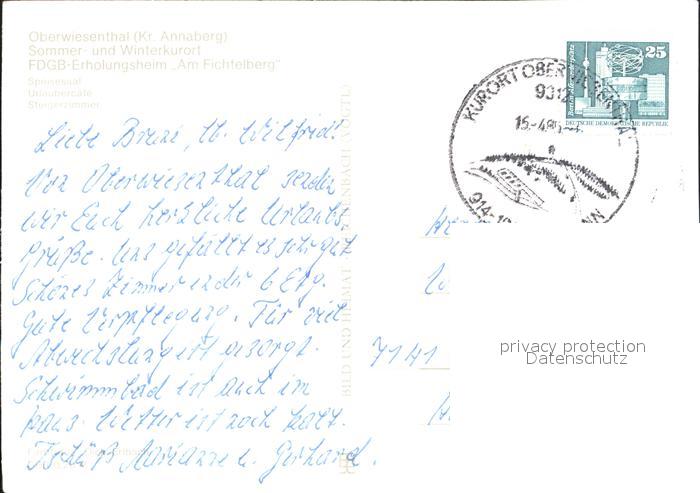 Oberwiesenthal (Kr. Annaberg)
Sommer- und Winterkurort
FDGB-Erholungsheim „Am Fichtelberg"
Speisesaal
Urlaubercafé
Steigerzimmer
25
DEUTSCHE DEMOKRATISCHE REPUBLIK
KURORT OBERWIESENTHAL
9312
15.-4.86
Von Oberwiesenthal senden
wir Euch herzliche Urlaubs-
grüße. Uns gefällt es sehr gut
Schönes Zimmer in der 6 Etg.
Gute Verpflegung. Für viel
Abwechslung ist gesorgt.
Schwimmbad ist auch im
Haus. Wetter ist noch kalt.
Tschüß Marianne u. Gerhard.
BILD UND HEIMAT REICHENBACH VOGTL
7141
privacy protection
Datenschutz